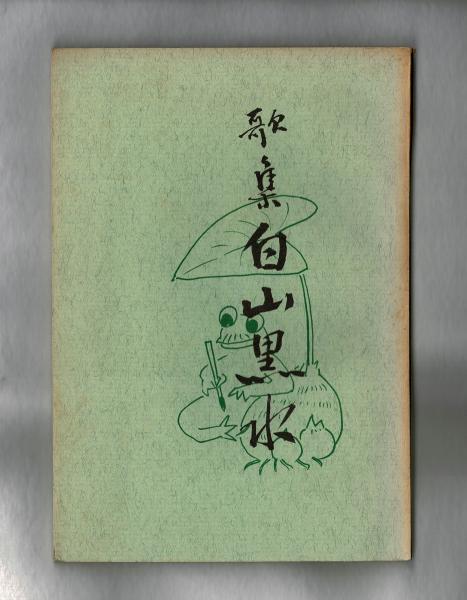 歌集白山黒水